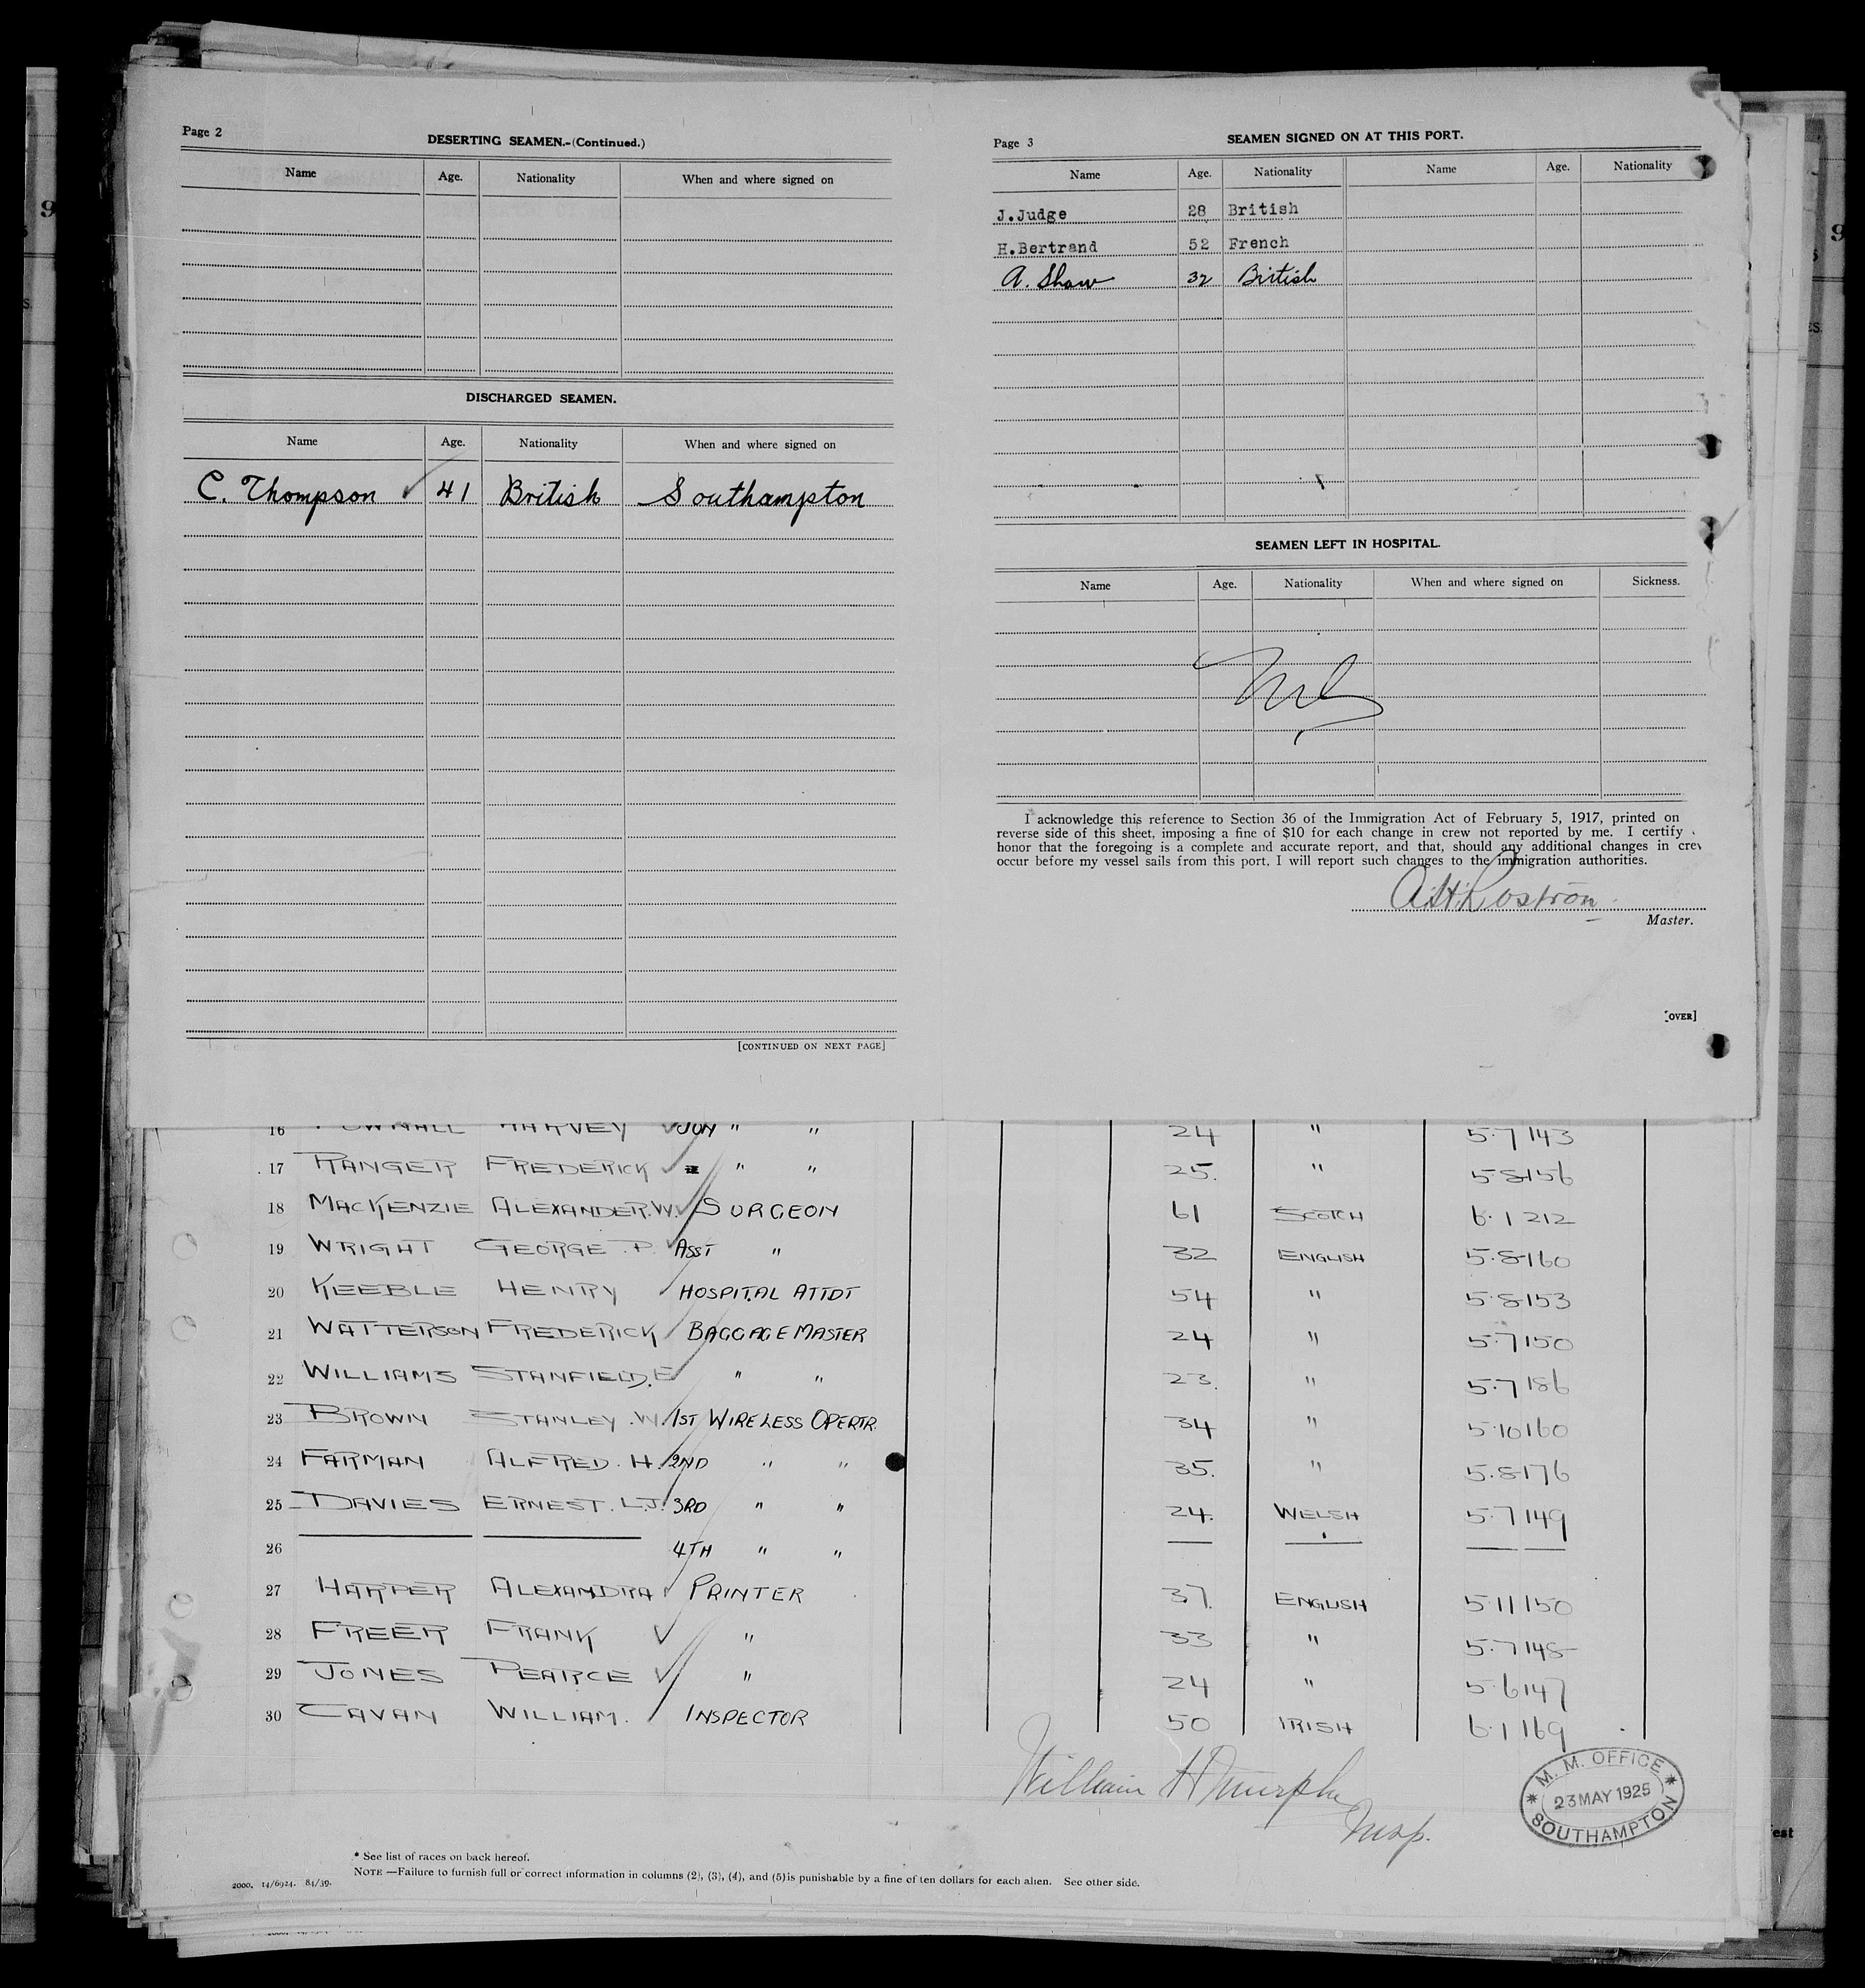 Page 2
DESERTING SEAMEN.-(Continued.)
Name Age. Nationality When and where signed on
DISCHARGED SEAMEN.
Name Age. Nationality When and where signed on
C. Thompson 41 British Southampton
[CONTINUED ON NEXT PAGE]
Page 3
SEAMEN SIGNED ON AT THIS PORT.
Name Age. Nationality Name Age. Nationality
J.Judge 28 British
H.Bertrand 52 French
A. Shaw 32 British
SEAMEN LEFT IN HOSPITAL.
Name Age. Nationality When and where signed on Sickness.
Nil
I acknowledge this reference to Section 36 of the Immigration Act of February 5, 1917, printed on
reverse side of this sheet, imposing a fine of $10 for each change in crew not reported by me. I certify
honor that the foregoing is a complete and accurate report, and that, should any additional changes in crew
occur before my vessel sails from this port, I will report such changes to the immigration authorities.
A.H. Rostron
Master.
[OVER]
16 HARVEY JUN " " 24 " 5·7 143
17 RANGER FREDERICK " " 25. " 5·8 156
18 MACKENZIE ALEXANDER.W. SURGEON 61 SCOTCH 6·1 212
19 WRIGHT GEORGE P. ASST " 32 ENGLISH 5·8 160
20 KEEBLE HENRY HOSPITAL ATTDT 54 " 5·8 153
21 WATTERSON FREDERICK BAGGAGE MASTER 24 " 5·7 150
22 WILLIAMS STANFIELD.E " " 23. " 5·7 186
23 BROWN STANLEY.W. 1ST WIRELESS OPERTR. 34 " 5·10 160
24 FARMAN ALFRED. H. 2ND " " 35. " 5·8 176
25 DAVIES ERNEST. L.J. 3RD " " 24. WELSH 5·7 149
26 4TH " "
27 HARPER ALEXANDRA PRINTER 37. ENGLISH 5·11 150
28 FREER FRANK " 33 " 5·7 148
29 JONES PEARCE " 24 " 5·6 147
30 CAVAN WILLIAM. INSPECTOR 50 IRISH 6·1 169
William H Murphy
Insp.
M. M. OFFICE
23 MAY 1925
SOUTHAMPTON
* See list of races on back hereof.
NOTE —Failure to furnish full or correct information in columns (2), (3), (4), and (5) is punishable by a fine of ten dollars for each alien. See other side.
2000. 14/6924. 84/39.